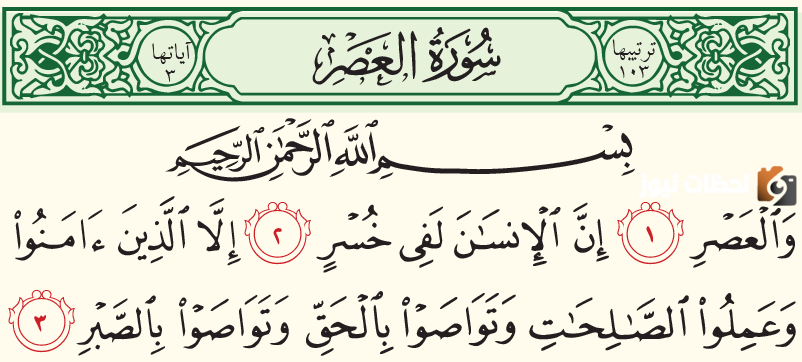 ترتيبها
١٠٣
سُورَةُ العَصْرِ
آياتها
٣
بِسْمِ ٱللَّهِ ٱلرَّحْمَٰنِ ٱلرَّحِيمِ
لحظات نيوز
وَٱلْعَصْرِ ١ إِنَّ ٱلْإِنسَٰنَ لَفِى خُسْرٍ ٢ إِلَّا ٱلَّذِينَ ءَامَنُوا۟
وَعَمِلُوا۟ ٱلصَّٰلِحَٰتِ وَتَوَاصَوْا۟ بِٱلْحَقِّ وَتَوَاصَوْا۟ بِٱلصَّبْرِ ٣